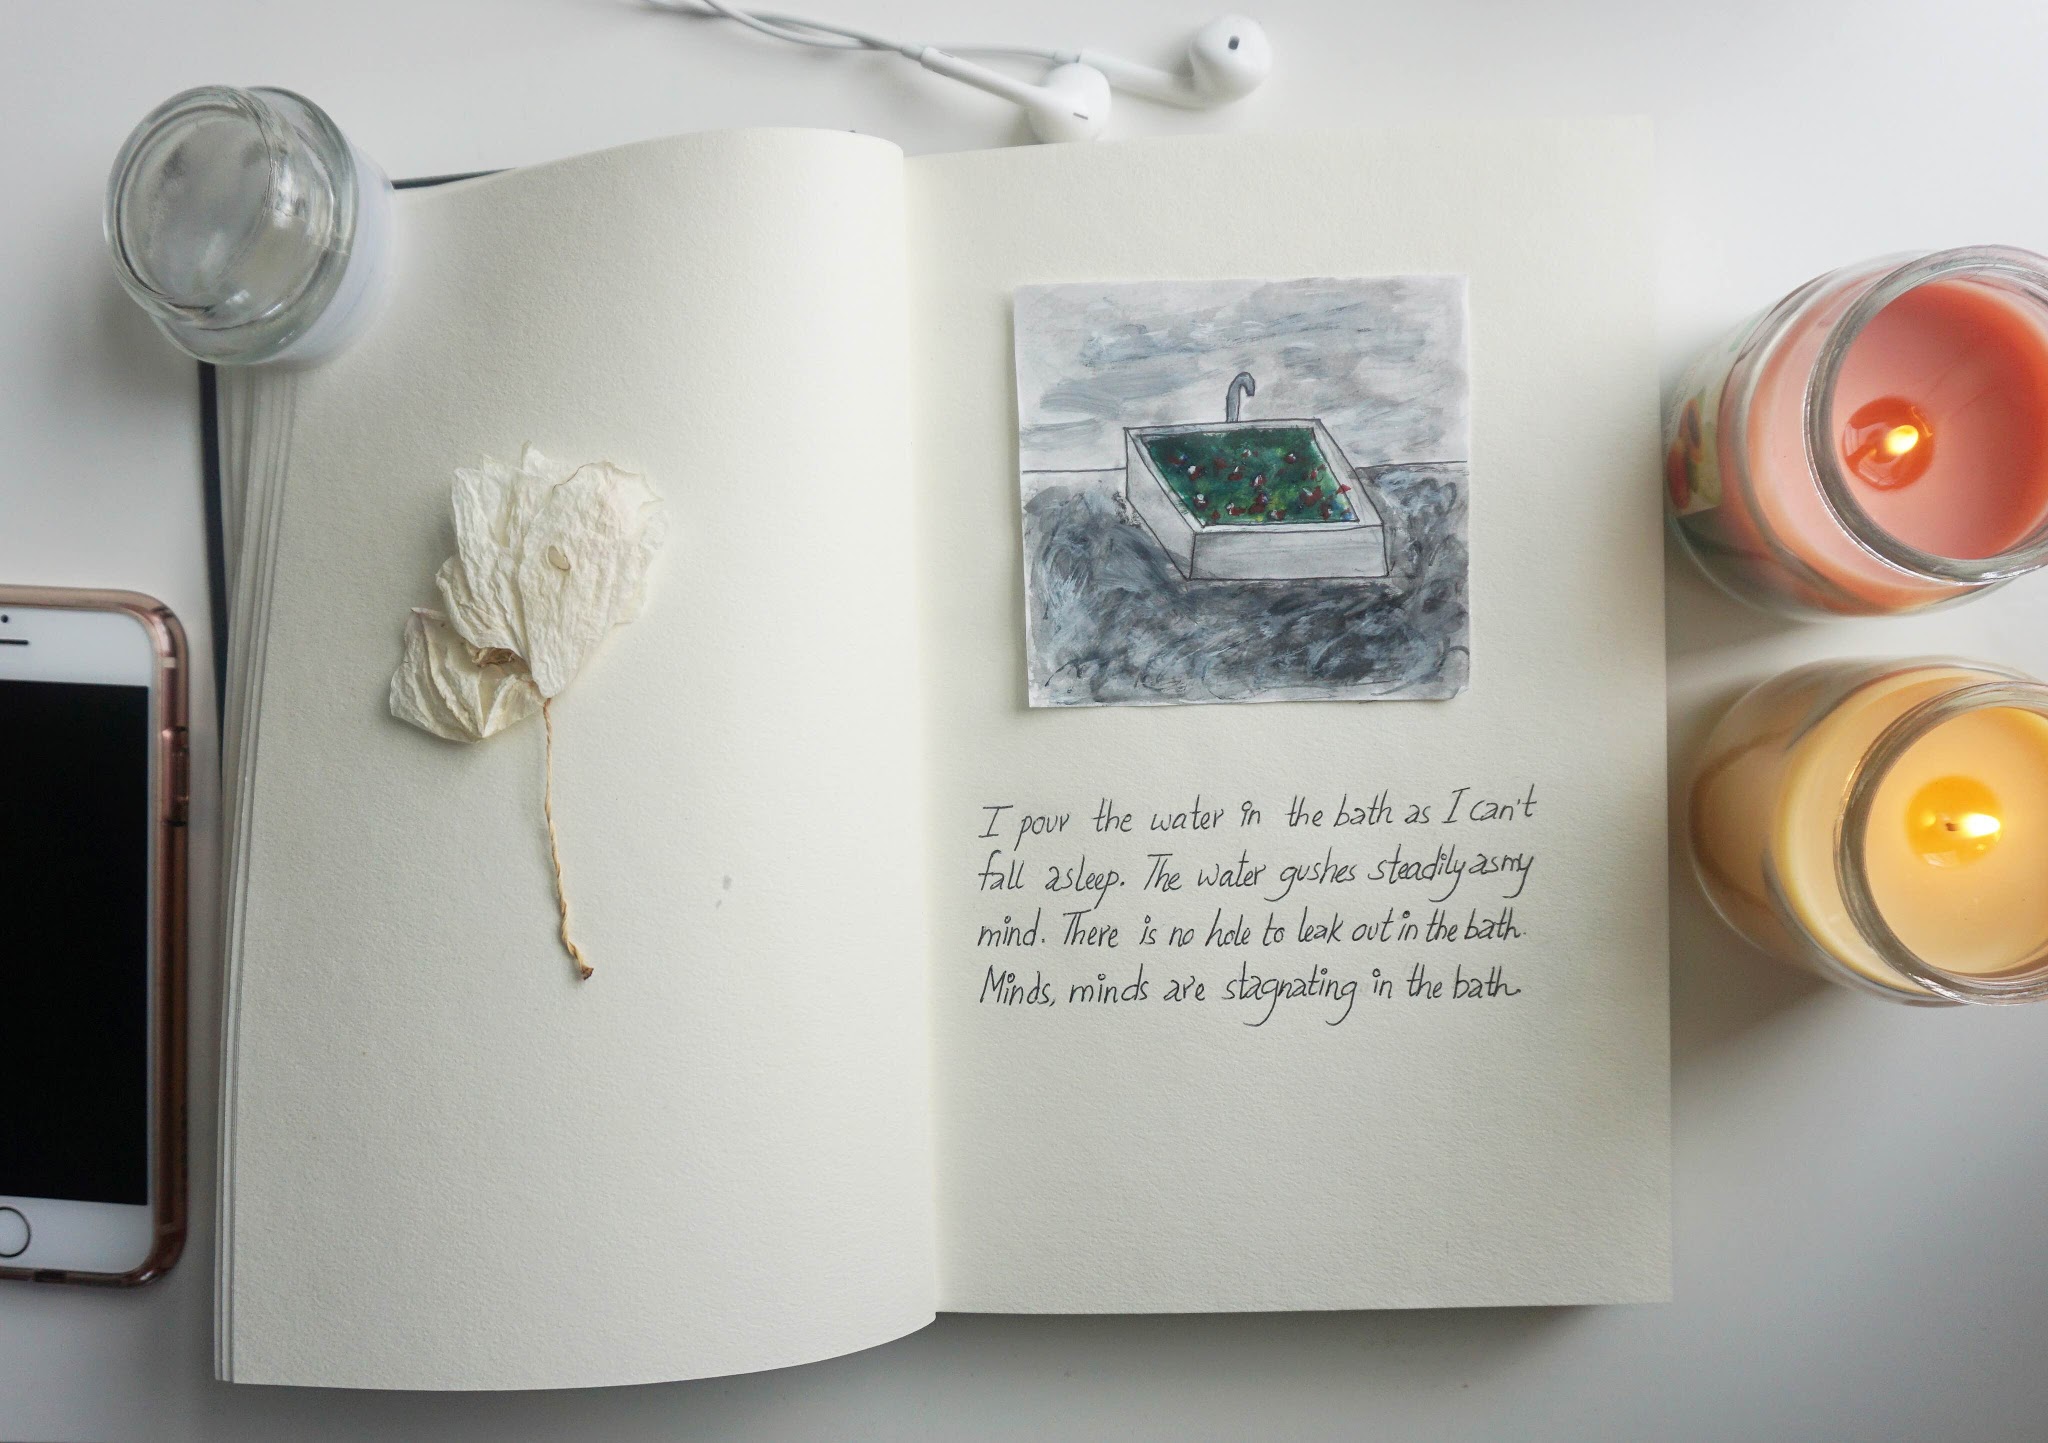 I pour the water in the bath as I can't
fall asleep. The water gushes steadily as my
mind. There is no hole to leak out in the bath.
Minds, minds are stagnating in the bath.